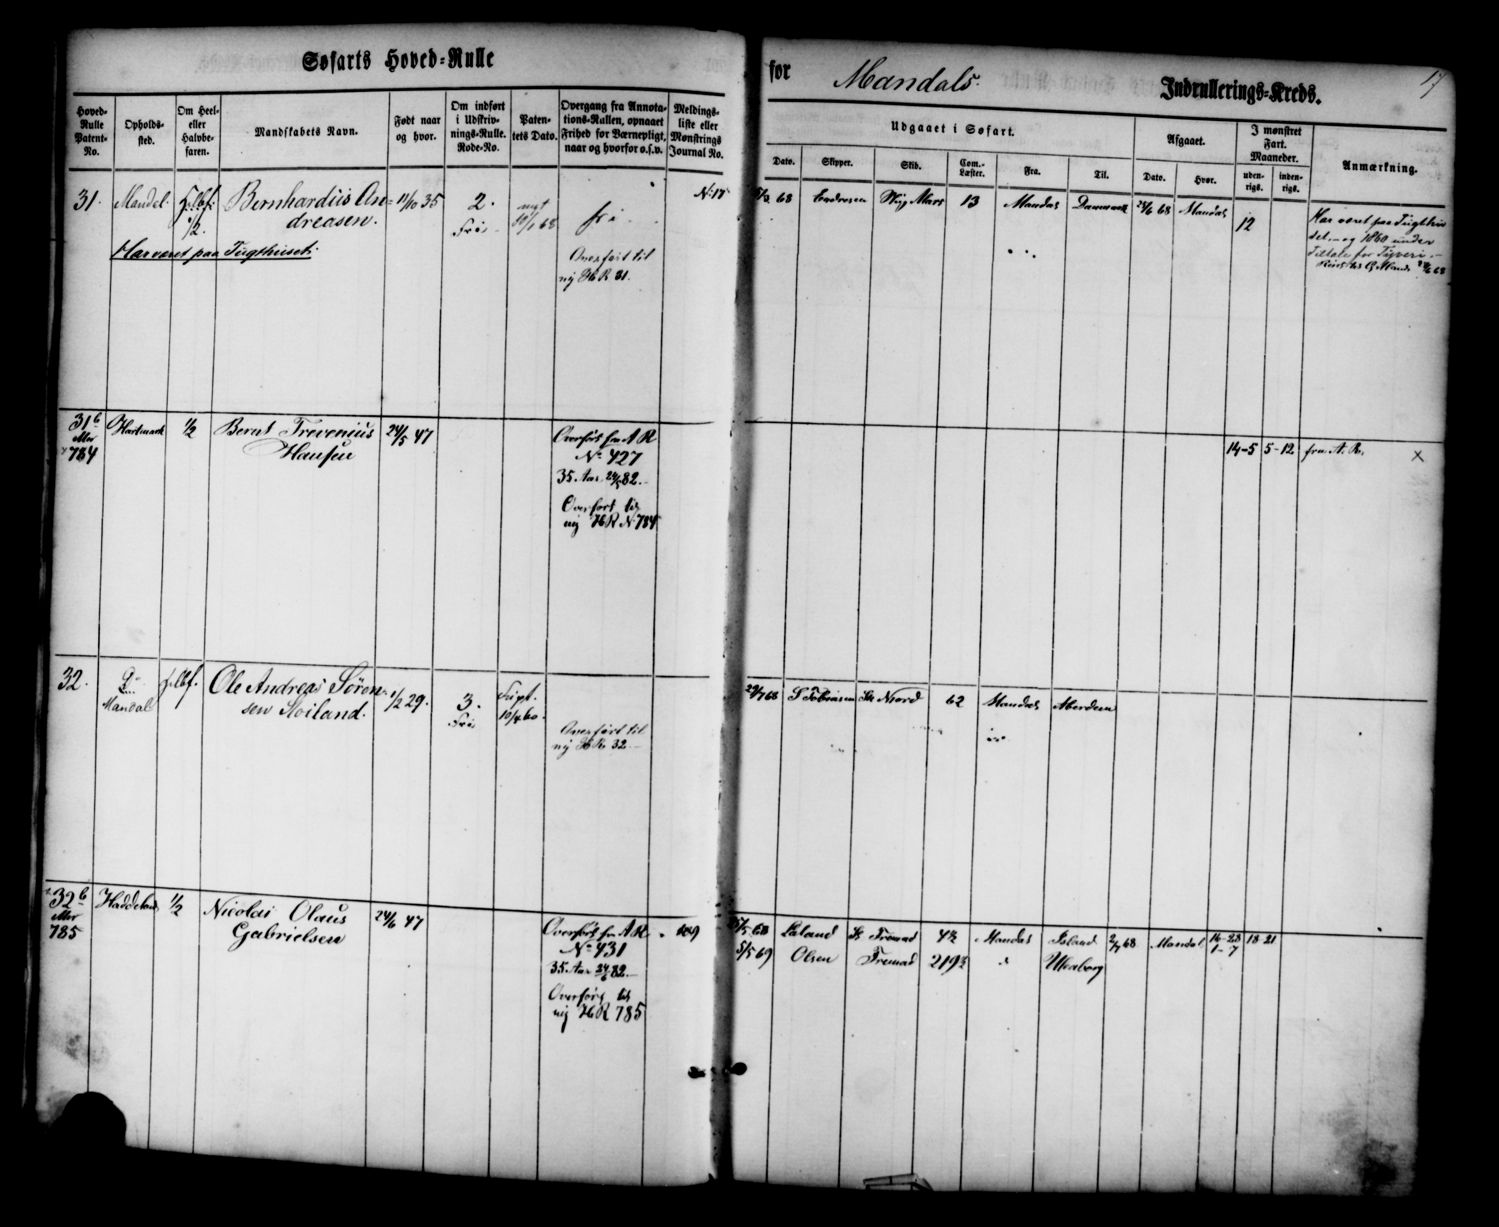 Søfarts Hoved-Rulle
for Mandals Indrullerings-Kreds.
17
Hoved-Rulle Patent-No.
Opholds-sted.
Om Heel- eller Halvbe-faren.
Mandskabets Navn.
Født naar og hvor.
Om indført i Udskriv-nings-Rulle. Rode-No.
Paten-tets Dato.
Overgang fra Annota-tions-Rullen, opnaaet Frihed for Værnepligt, naar og hvorfor o.s.v.
Meldings-liste eller Mønstrings Journal No.
Udgaaet i Søfart.
Dato.
Skipper.
Skib.
Com.-Læster.
Fra.
Til.
Afgaaet.
Dato.
Hvor.
I mønstret Fart. Maaneder.
uden-rigs.
inden-rigs.
Anmærkning.
31. Mandal. Bernhardius An-
dreasen.
11/10 35
2.
Fri
1/2.
Har været paa Tugthuset.
fri
Overført til
ny H R 31.
No 17
68 Endresen Mars 13 Mandal 24/6 68 Mandal 12
Har været paa Tugthu
set og 1860 under
Tiltale for Tyveri
31 b
784
1/2 Bernt Trevenius
Hansen
24/5 47
Overført fra A R
No 427
35 Aar 24/5 82.
Overført til
ny H R No 784
14-5 5-12 fra A. R. X
32.
Mandal
Ole Andreas Søren-
sen Stoiland.
1/2 29.
3.
Fri
Overført til
ny H R 32
29/7 68 S Tobiasen Njord 62 Mandal Aberdeen
32 b
785
1/2 Nicolai Olaus
Gabrielsen
24/6 47
Overført fra A R.
No 431
35 Aar 24/6 82.
Overført til
ny H R 785
109
68 Laland Fremad 4½ Mandal Island 2/7 68 Mandal 16-28 18-21
1-7
5/5 69 Olsen Fremad 219½ " Uleaborg